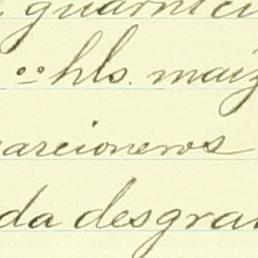 guarnici
hls. maiz
arcioneros
da desgra